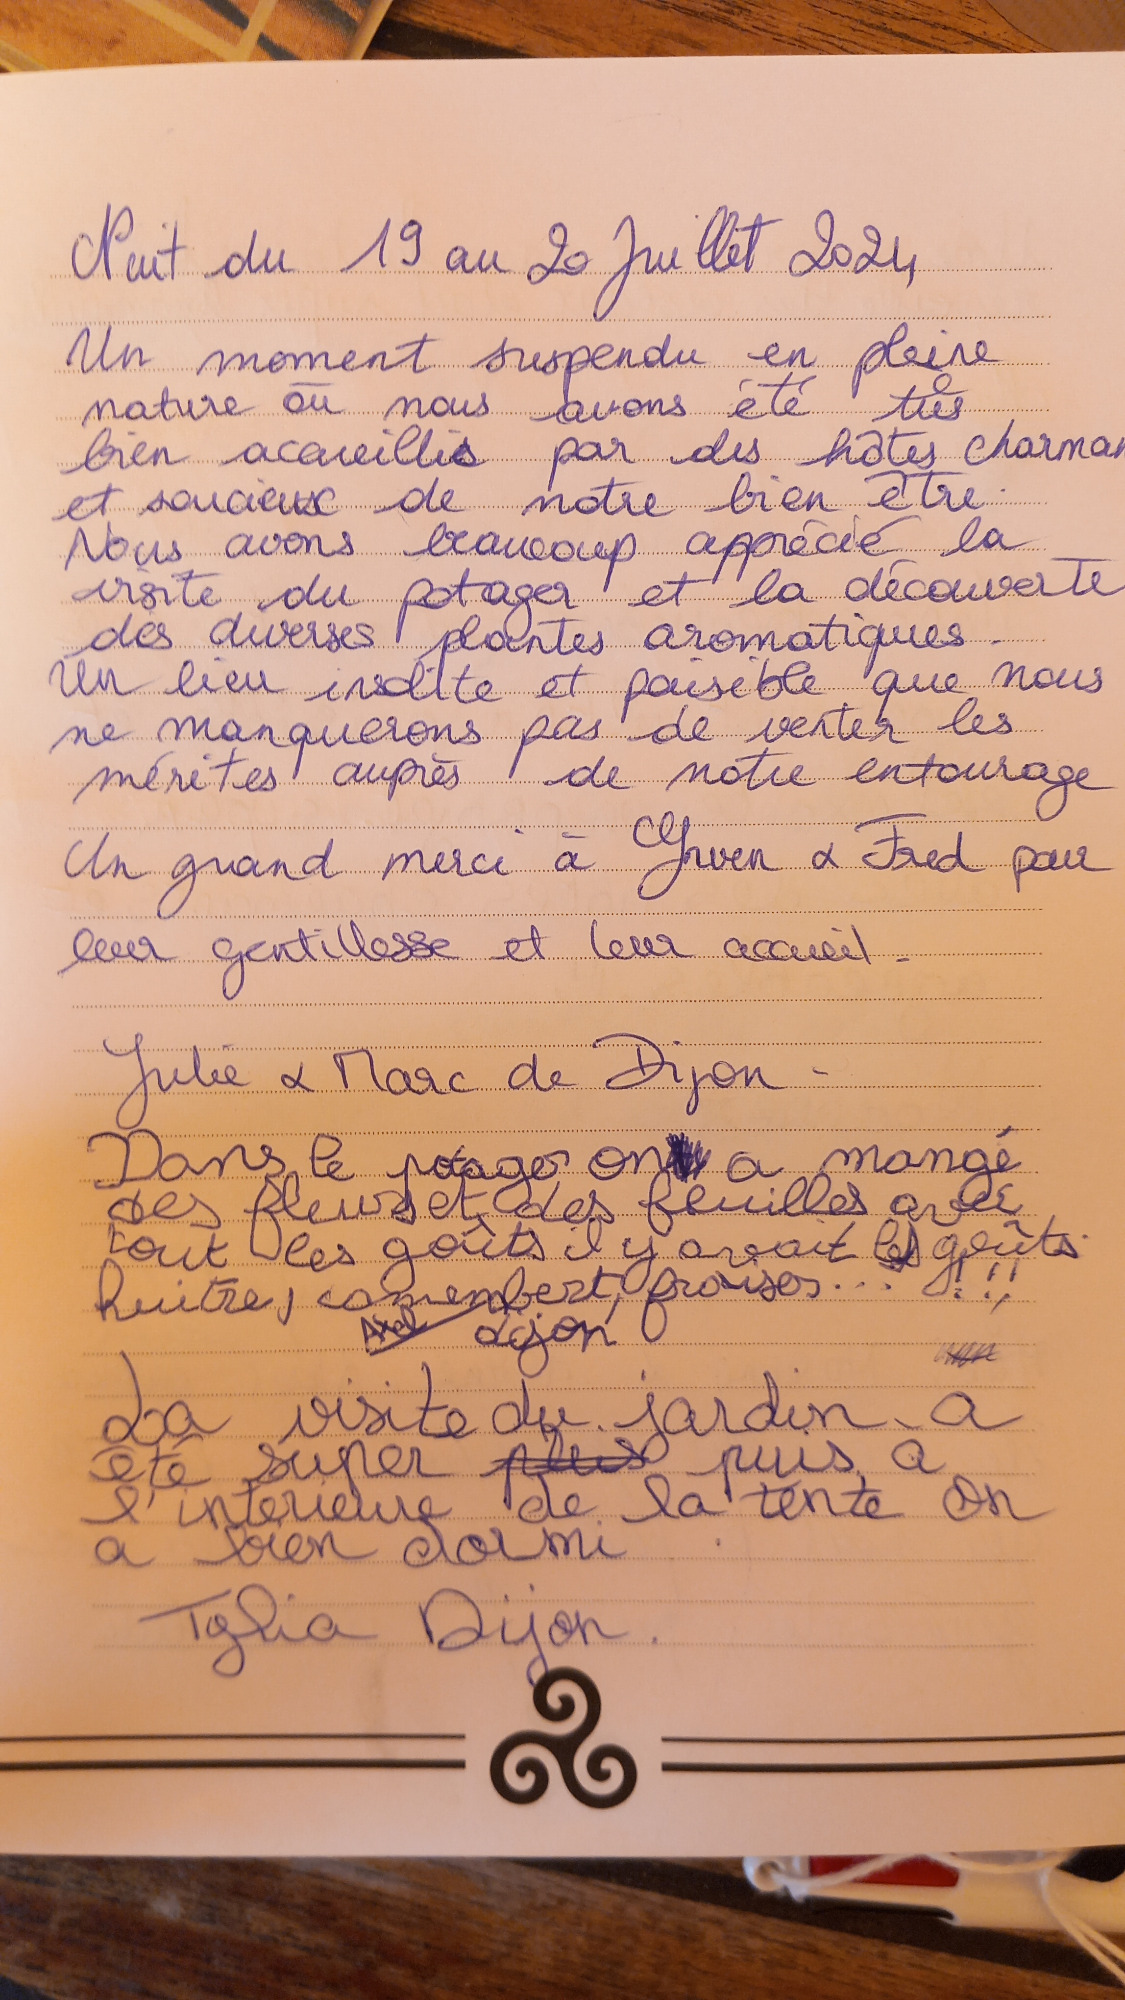 Nuit du 19 au 20 Juillet 2024
Un moment suspendu en pleine
nature où nous avons été très
bien accueillis par des hôtes charman
et soucieux de notre bien être.
Nous avons beaucoup apprécié la
visite du potager et la découverte
des diverses plantes aromatiques.
Un lieu insolite et paisible que nous
ne manquerons pas de venter les
mérites auprès de notre entourage
Un grand merci à & Fred pour
leur gentillesse et leur accueil.
Julie & Marc de Dijon -
Dans le potager on a mangé
des fleurs et des feuilles avec
tout les goûts il y avait les goûts
huitre, camembert, fraises... !!!
Axel dijon
La visite du jardin a
été super plus puis a
l'interieure de la tente on
a bien dormi
Dijon.